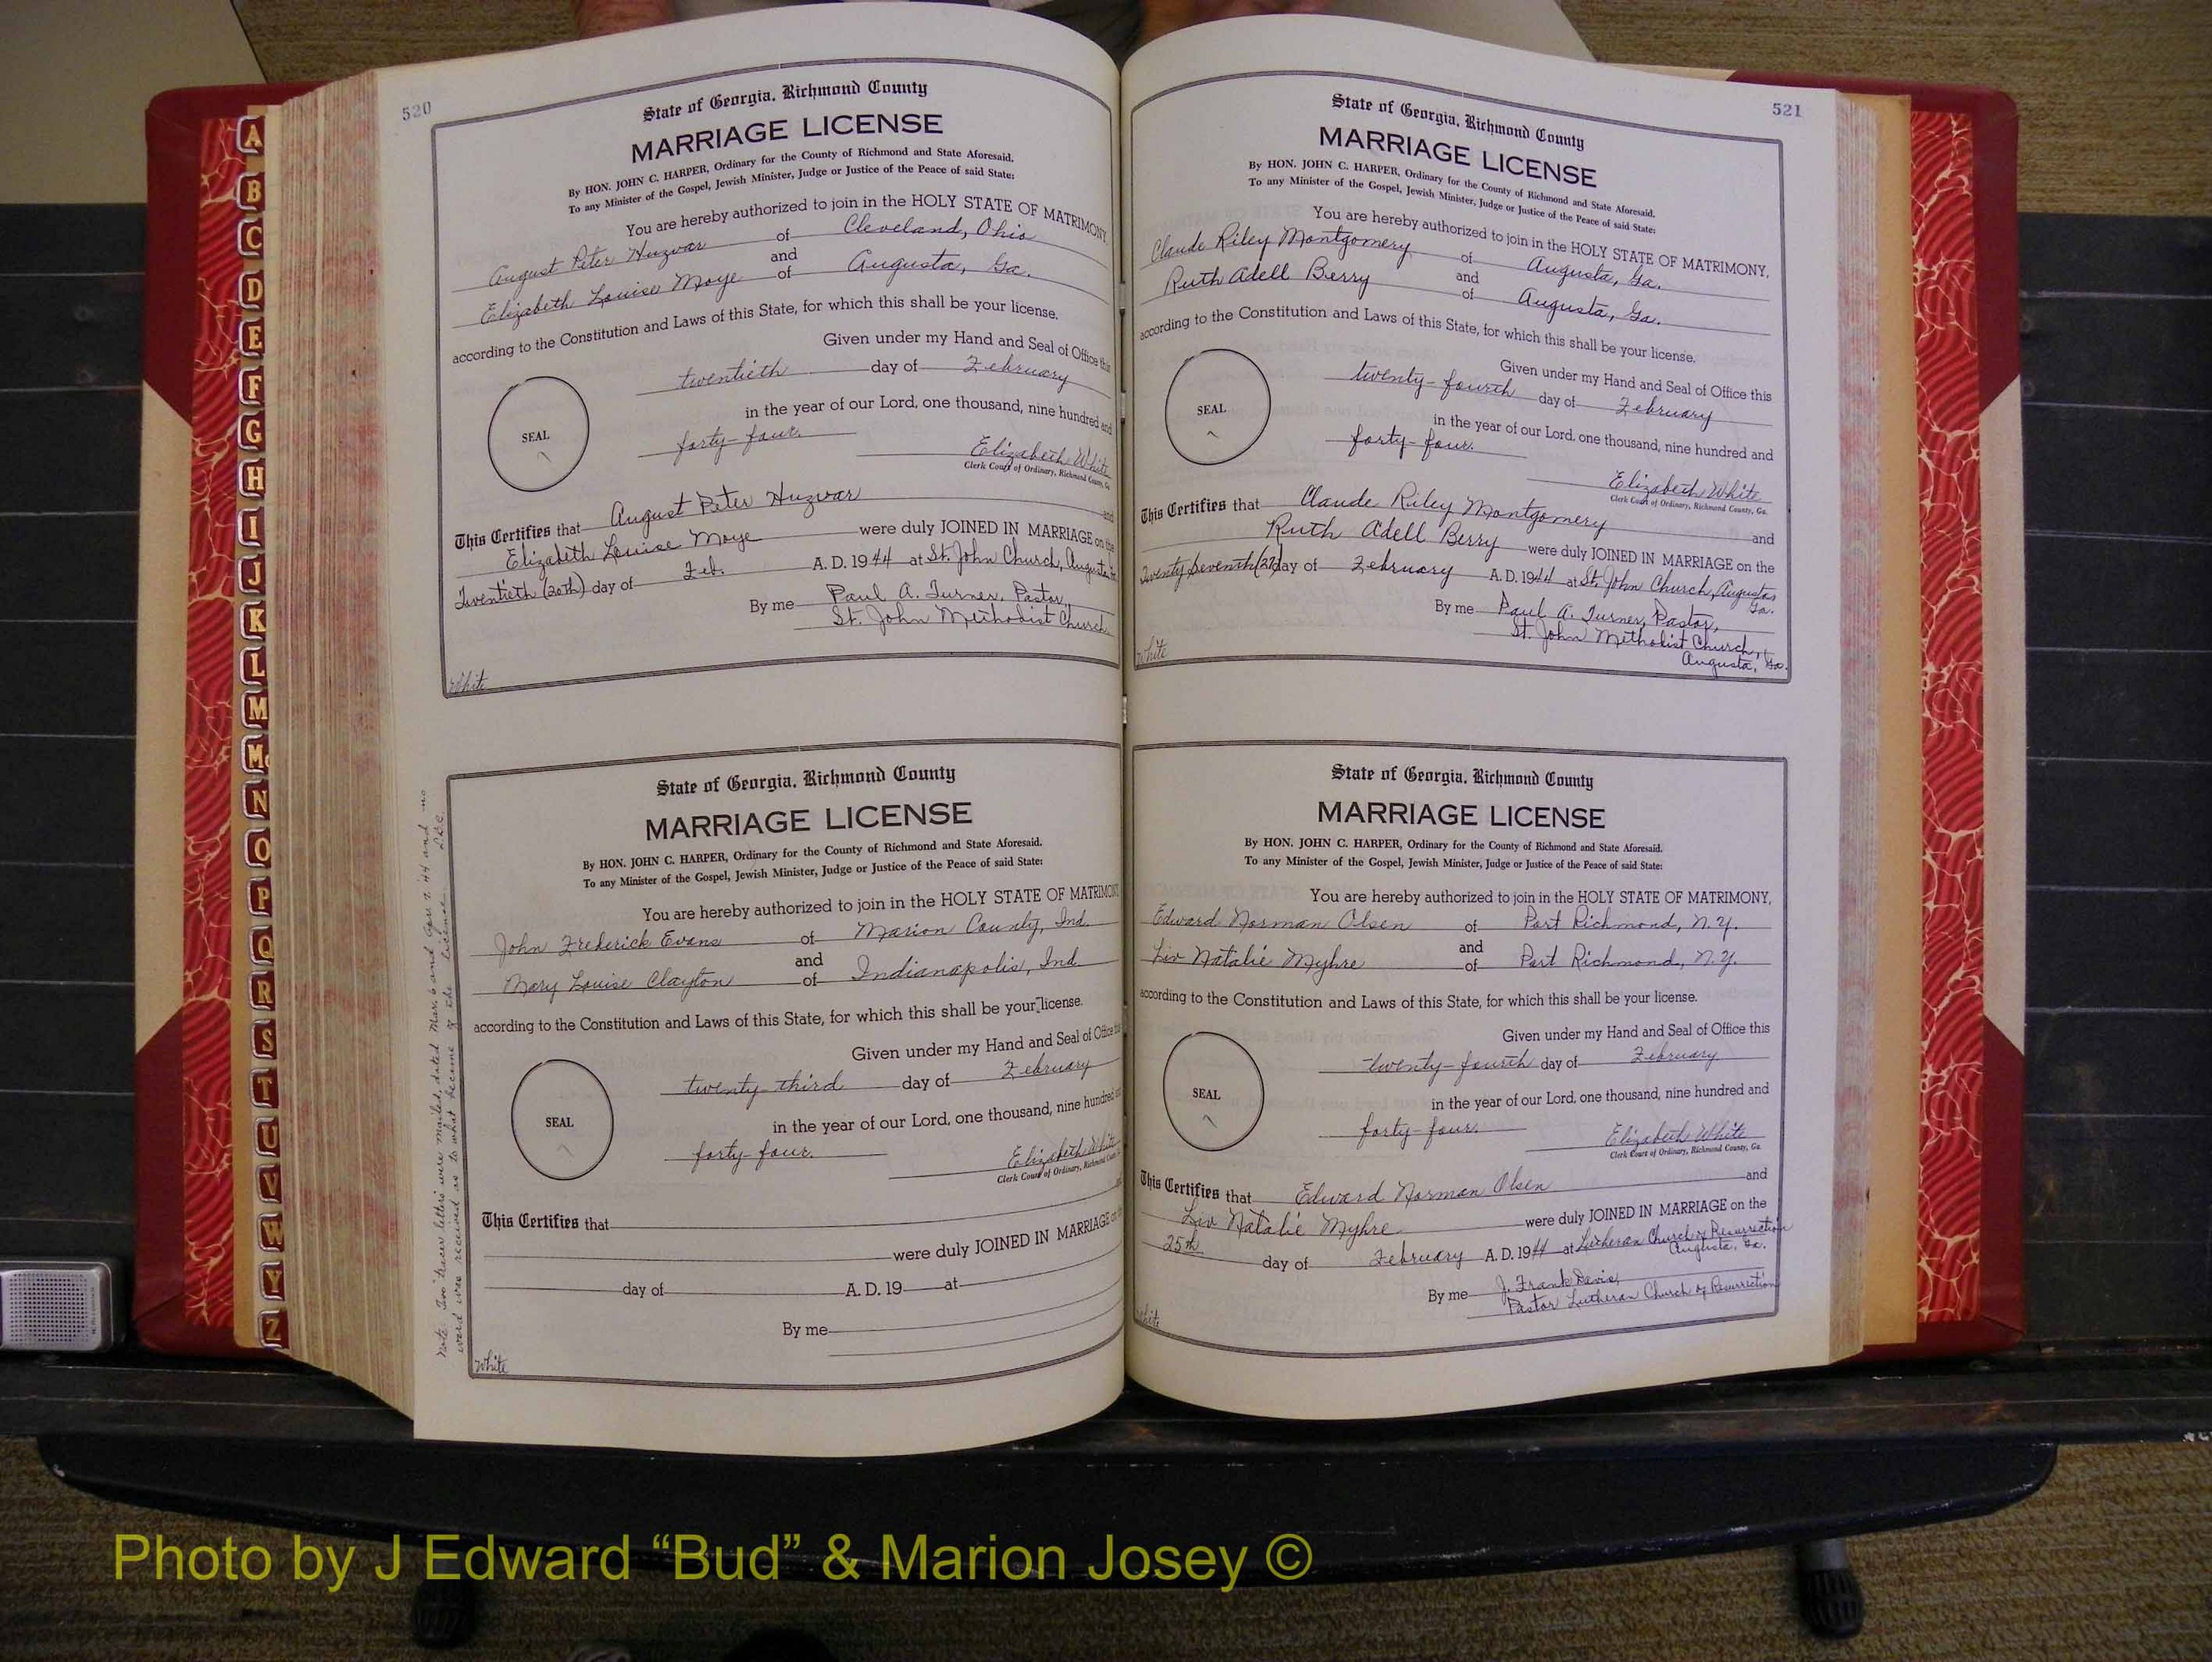 520
State of Georgia, Richmond County
MARRIAGE LICENSE
By HON. JOHN C. HARPER, Ordinary for the County of Richmond and State Aforesaid.
To any Minister of the Gospel, Jewish Minister, Judge or Justice of the Peace of said State:
You are hereby authorized to join in the HOLY STATE OF MATRIMONY,
August Peter Huzvar of Cleveland, Ohio
and
Elizabeth Louise Moye of Augusta, Ga.
according to the Constitution and Laws of this State, for which this shall be your license.
Given under my Hand and Seal of Office this
twentieth day of February
in the year of our Lord, one thousand, nine hundred and
SEAL
forty-four.
Elizabeth White
Clerk Court of Ordinary, Richmond County, Ga.
This Certifies that August Peter Huzvar and
Elizabeth Louise Moye were duly JOINED IN MARRIAGE on the
Twentieth (20th) day of Feb. A. D. 1944 at St. John Church, Augusta,
By me Paul A. Turner, Pastor,
St. John Methodist Church
White
State of Georgia, Richmond County
MARRIAGE LICENSE
By HON. JOHN C. HARPER, Ordinary for the County of Richmond and State Aforesaid.
To any Minister of the Gospel, Jewish Minister, Judge or Justice of the Peace of said State:
You are hereby authorized to join in the HOLY STATE OF MATRIMONY
John Frederick Evans of Marion County, Ind.
and
Mary Louise Clayton of Indianapolis, Ind.
according to the Constitution and Laws of this State, for which this shall be your license.
Given under my Hand and Seal of Office this
twenty-third day of February
in the year of our Lord, one thousand, nine hundred and
SEAL
forty-four.
Elizabeth White
Clerk Court of Ordinary, Richmond County
This Certifies that
were duly JOINED IN MARRIAGE on
day of A. D. 19 at
By me
White
Note: Two tracer letters were mailed, dated Mar. 6 and Apr. 7 '44 and no
word was received as to what became of the license.
521
State of Georgia, Richmond County
MARRIAGE LICENSE
By HON. JOHN C. HARPER, Ordinary for the County of Richmond and State Aforesaid.
To any Minister of the Gospel, Jewish Minister, Judge or Justice of the Peace of said State:
You are hereby authorized to join in the HOLY STATE OF MATRIMONY,
Claude Riley Montgomery of Augusta, Ga.
and
Ruth Adell Berry of Augusta, Ga.
according to the Constitution and Laws of this State, for which this shall be your license.
Given under my Hand and Seal of Office this
twenty-fourth day of February
in the year of our Lord, one thousand, nine hundred and
SEAL
forty-four.
Elizabeth White
Clerk Court of Ordinary, Richmond County, Ga.
This Certifies that Claude Riley Montgomery and
Ruth Adell Berry were duly JOINED IN MARRIAGE on the
Twenty Seventh (27) day of February A. D. 1944 at St. John Church, Augusta,
Ga.
By me Paul A. Turner, Pastor,
St. John Methodist Church,
Augusta, Ga.
White
State of Georgia, Richmond County
MARRIAGE LICENSE
By HON. JOHN C. HARPER, Ordinary for the County of Richmond and State Aforesaid.
To any Minister of the Gospel, Jewish Minister, Judge or Justice of the Peace of said State:
You are hereby authorized to join in the HOLY STATE OF MATRIMONY,
Edward Norman Olsen of Port Richmond, N.Y.
and
Liv Natalie Myhre of Port Richmond, N.Y.
according to the Constitution and Laws of this State, for which this shall be your license.
Given under my Hand and Seal of Office this
twenty-fourth day of February
in the year of our Lord, one thousand, nine hundred and
SEAL
forty-four.
Elizabeth White
Clerk Court of Ordinary, Richmond County, Ga.
This Certifies that Edward Norman Olsen and
Liv Natalie Myhre were duly JOINED IN MARRIAGE on the
25th day of February A. D. 1944 at Lutheran Church of Resurrection
Augusta, Ga.
By me J. Frank Davis,
Pastor Lutheran Church of Resurrection
White
A
B
C
D
E
F
G
H
I
J
K
L
M
Mc
N
O
P
Q
R
S
T
U
V
W
Y
Z
Photo by J Edward “Bud” & Marion Josey ©